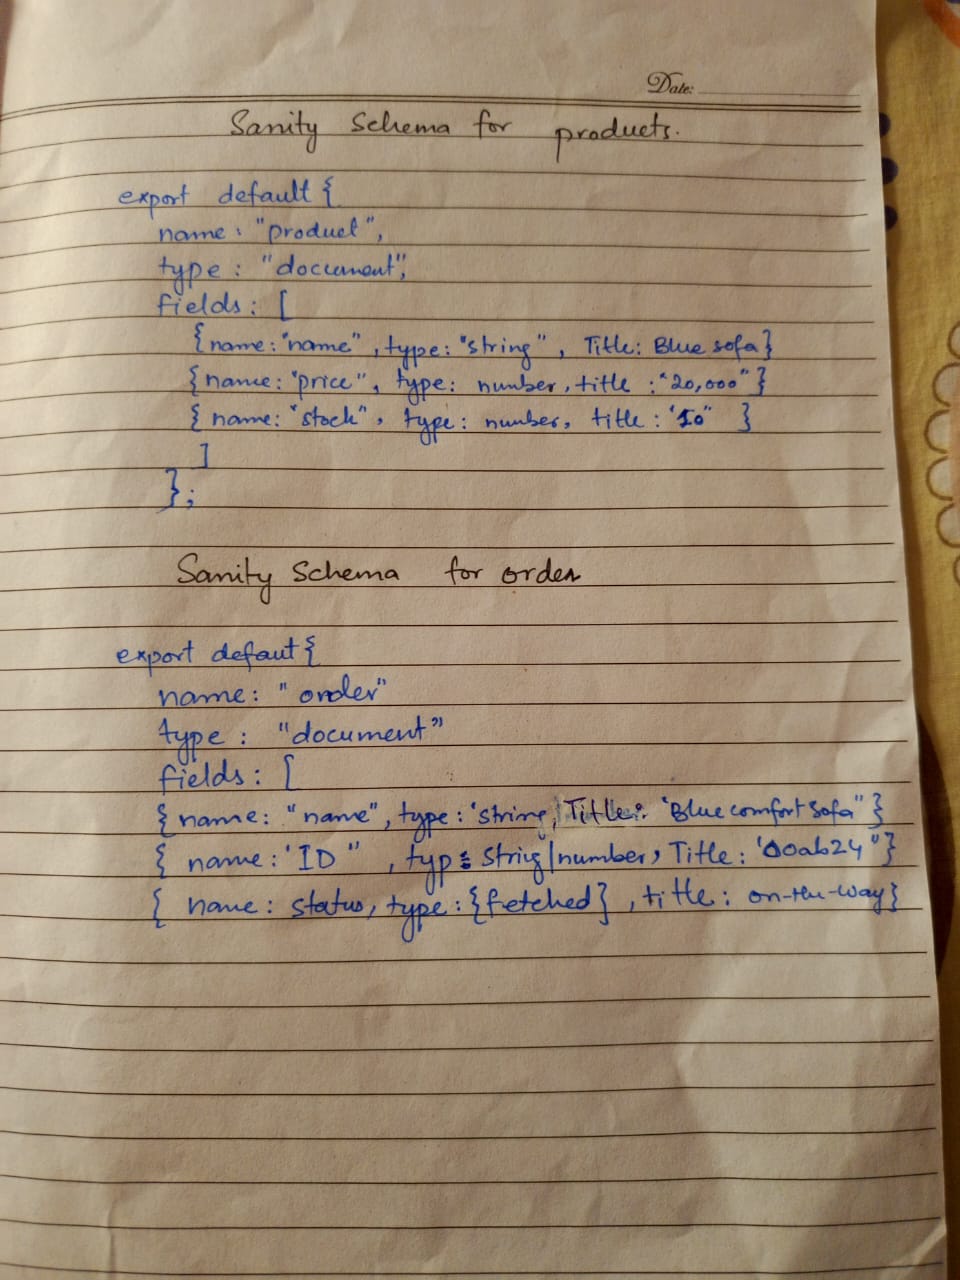 Date:
Sanity Schema for products.
export default {
name: "product",
type: "document",
fields: [
{name: "name", type: "string", Title: Blue sofa}
{name: "price", type: number, title: "20,000"}
{name: "stock", type: number, title: '10" }
]
};
Sanity Schema for order
export defaut {
name: "order"
type: "document"
fields: [
{name: "name", type: 'string, Title: 'Blue comfort Sofa"}
{ name: 'ID", typ: Strig|number, Title: '00ab24"}
{ name: status, type: {fetched}, title: on-the-way}